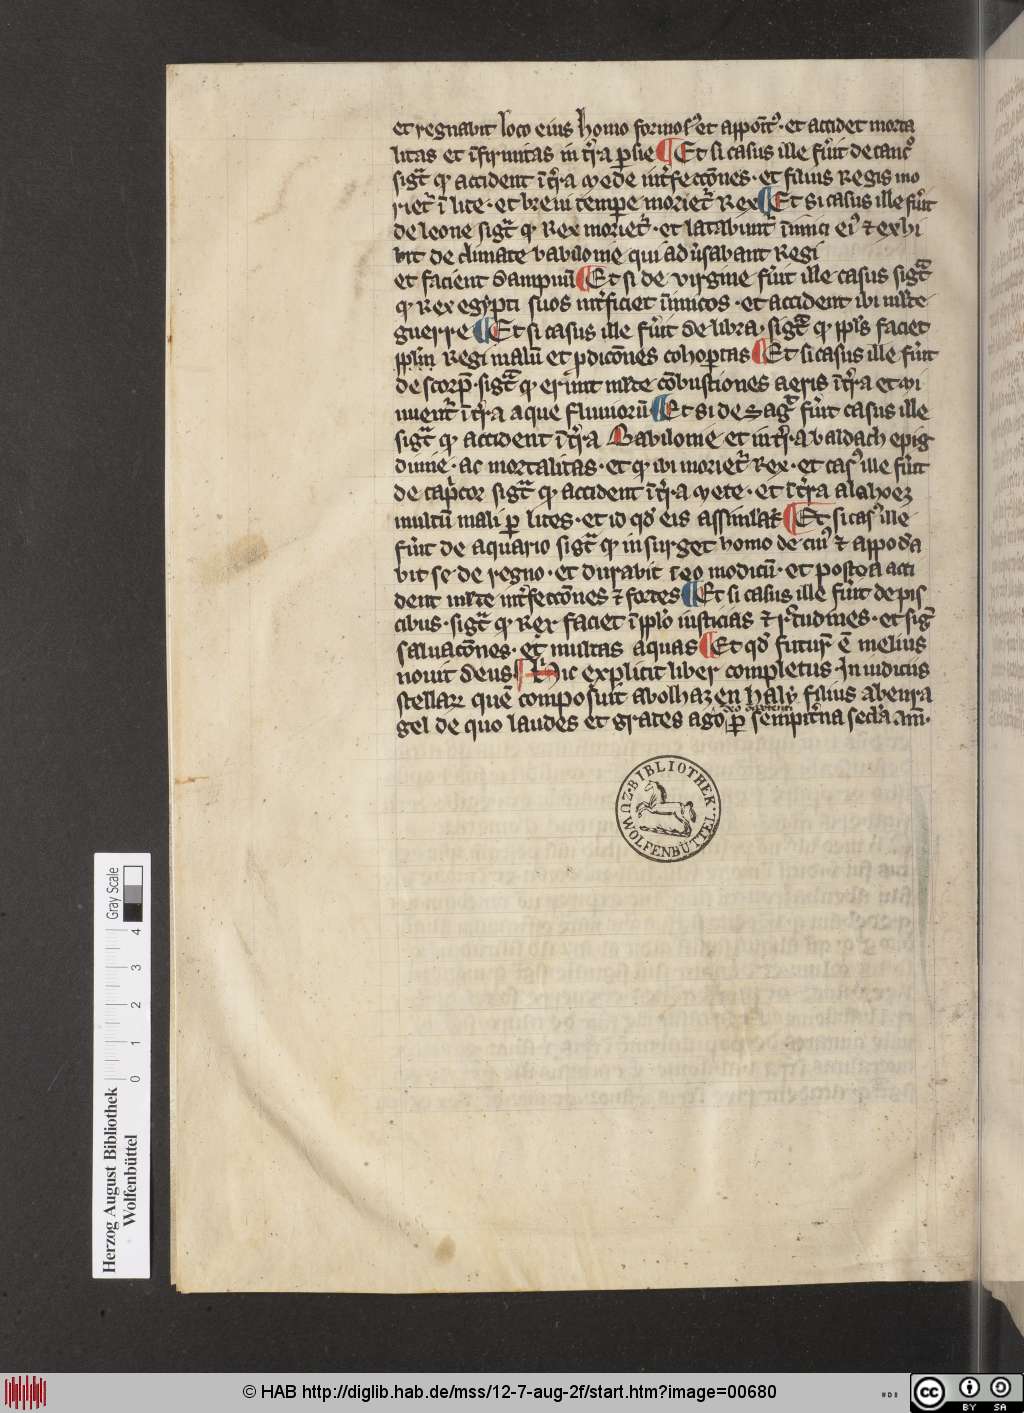 et regnabit loco eius homo formosꝰ et appoĩtꝰ · et accidet morta
litas et ĩfirmitas in t̃ra ꝑsie ¶ Et si casus ille fũit de cancꝰ
sigt̃ ꝙ accident ĩ t̃ra mede int̃feccõnes · et filius Regis mo
riet̃ ĩ lite · et breui tempe moriet̃ Rex ¶ Et si casus ille fũit
de leone sigt̃ ꝙ Rex moriet̃ · et latabunt̃ ĩnimici eiꝰ ⁊ exhi
bit de climate babilonie qui adũsabant Regi
et facient dampnũ ¶ Et si de virgine fũit ille casus sigt̃
ꝙ Rex egypti suos int̃ficiet ĩnimicos · et accident ibi ml̃te
guerre ¶ Et si casus ille fũit de libra · sigt̃ ꝙ ppl̃s faciet
ppl̃m Regi malũ et pdicõnes cohoptas ¶ Et si casus ille fũit
de scorp̃ · sigt̃ ꝙ erũnt ml̃te cõbustiones aeris ĩ t̃ra et mi
nuent̃ ĩ t̃ra aque fluuiorũ ¶ Et si de Sagt̃ fũit casus ille
sigt̃ ꝙ accident ĩ t̃ra Babilonie et in t̃ra baldach epig
dimie · ac mortalitas · et ꝙ ibi moriet̃ Rex · et casꝰ ille fũit
de cap̃cor sigt̃ ꝙ accident ĩ t̃ra mete · et ĩ t̃ra alahoez
multũ mali ꝑ lites · et id qd̃ eis assimlat̃ ¶ Et si casꝰ ille
fũit de aquario sigt̃ ꝙ insurget homo de ciuiꝰ ⁊ appoda
bit se de regno · et durabit ĩ eo modicũ · et postea acci
dent ml̃te int̃feccõnes ⁊ fortes ¶ Et si casus ille fũit de pis
cibus · sigt̃ ꝙ Rex faciet ĩ pplo iusticias ⁊ rc̃tudines · et sigt̃
saluacõnes · et multas aquas ¶ Et qd̃ futur̃ ẽ melius
nouit deus ¶ Hic explicit liber completus In iudiciis
stellaꝝ quẽ composuit abolhazen haly filius abenra
gel de quo laudes et grates ago deo ꝑ sempit̃na sec̃la am̃ ·
BIBLIOTHEK · ZU WOLFENBÜTTEL ·
Herzog August Bibliothek
Wolfenbüttel
0 1 2 3 4
Gray Scale
© HAB http://diglib.hab.de/mss/12-7-aug-2f/start.htm?image=00680
cc BY SA